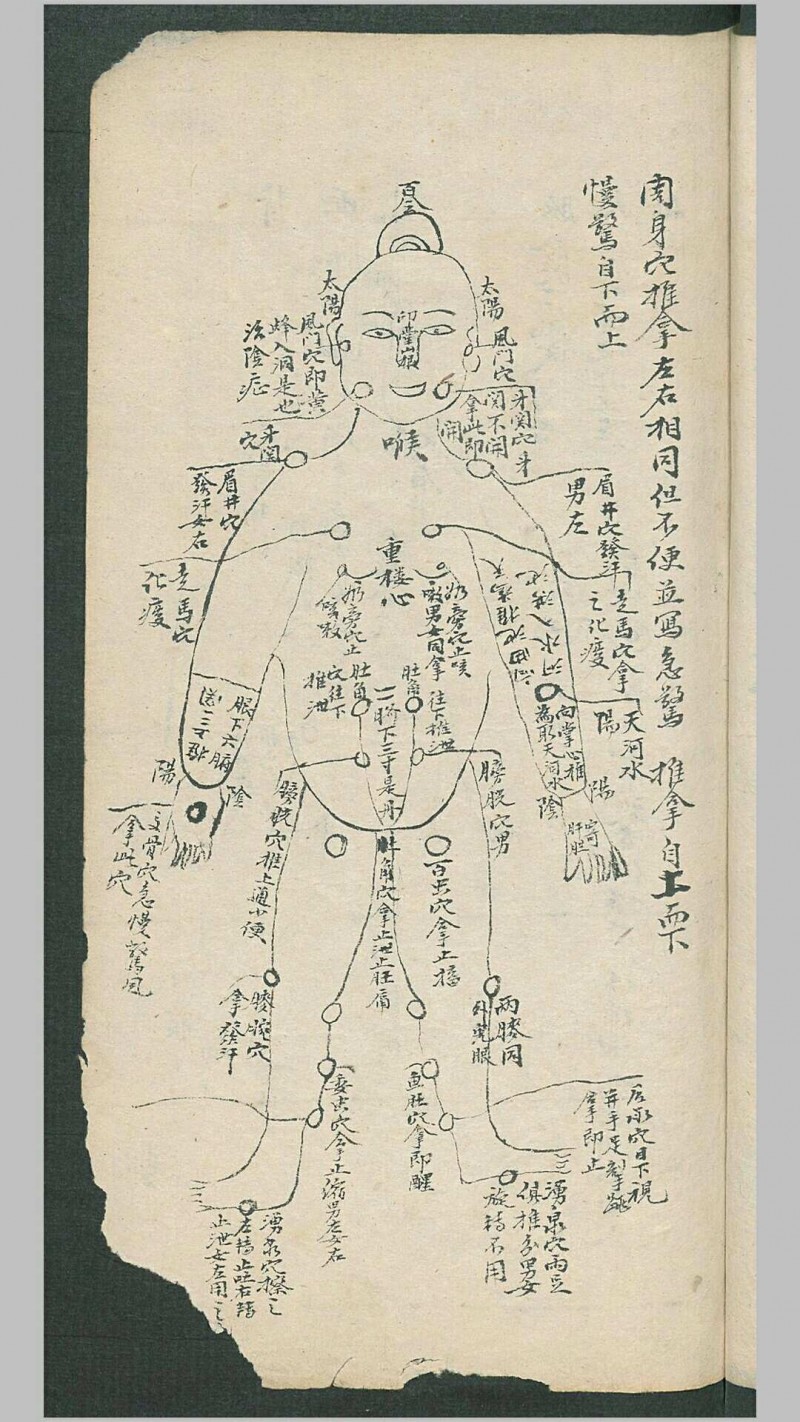 周身穴推拿左右相同但不便並寫急驚 推拿自上而下
慢驚自下而上
百會
太陽
風門穴
太陽
風門穴即黃
蜂入洞是也
治陰症
印堂
牙関穴 牙
関不開
拿此即
開
喉
牙関
穴
眉井穴發汗
男左
眉井穴
發汗女右
走馬穴拿
之化痰
走馬穴
化痰
重楼
心
奶旁穴止咳
嗽男女同拿
奶旁穴止
咳嗽
肚角
往下推泄
肚角
穴往下
推泄
臍下三寸是丹
天河水
陽
向掌心推
為取天河水
陰
陽
肝胆
服下六腑
陽
陰
膀胱穴男
膀胱穴推上通小便
肚角穴拿止泄止肚痛
百虫穴拿止搐
拿此穴
膝腕穴
拿發汗
兩膝同
外鬼眼
委中穴拿止縮男左女右
魚肚穴拿即醒
后承穴目下視
并手足掣跳
拿即止
湧泉穴兩足
俱推分男女
旋转不用
湧泉穴擦之
左转止吐右转
止泄女左用之